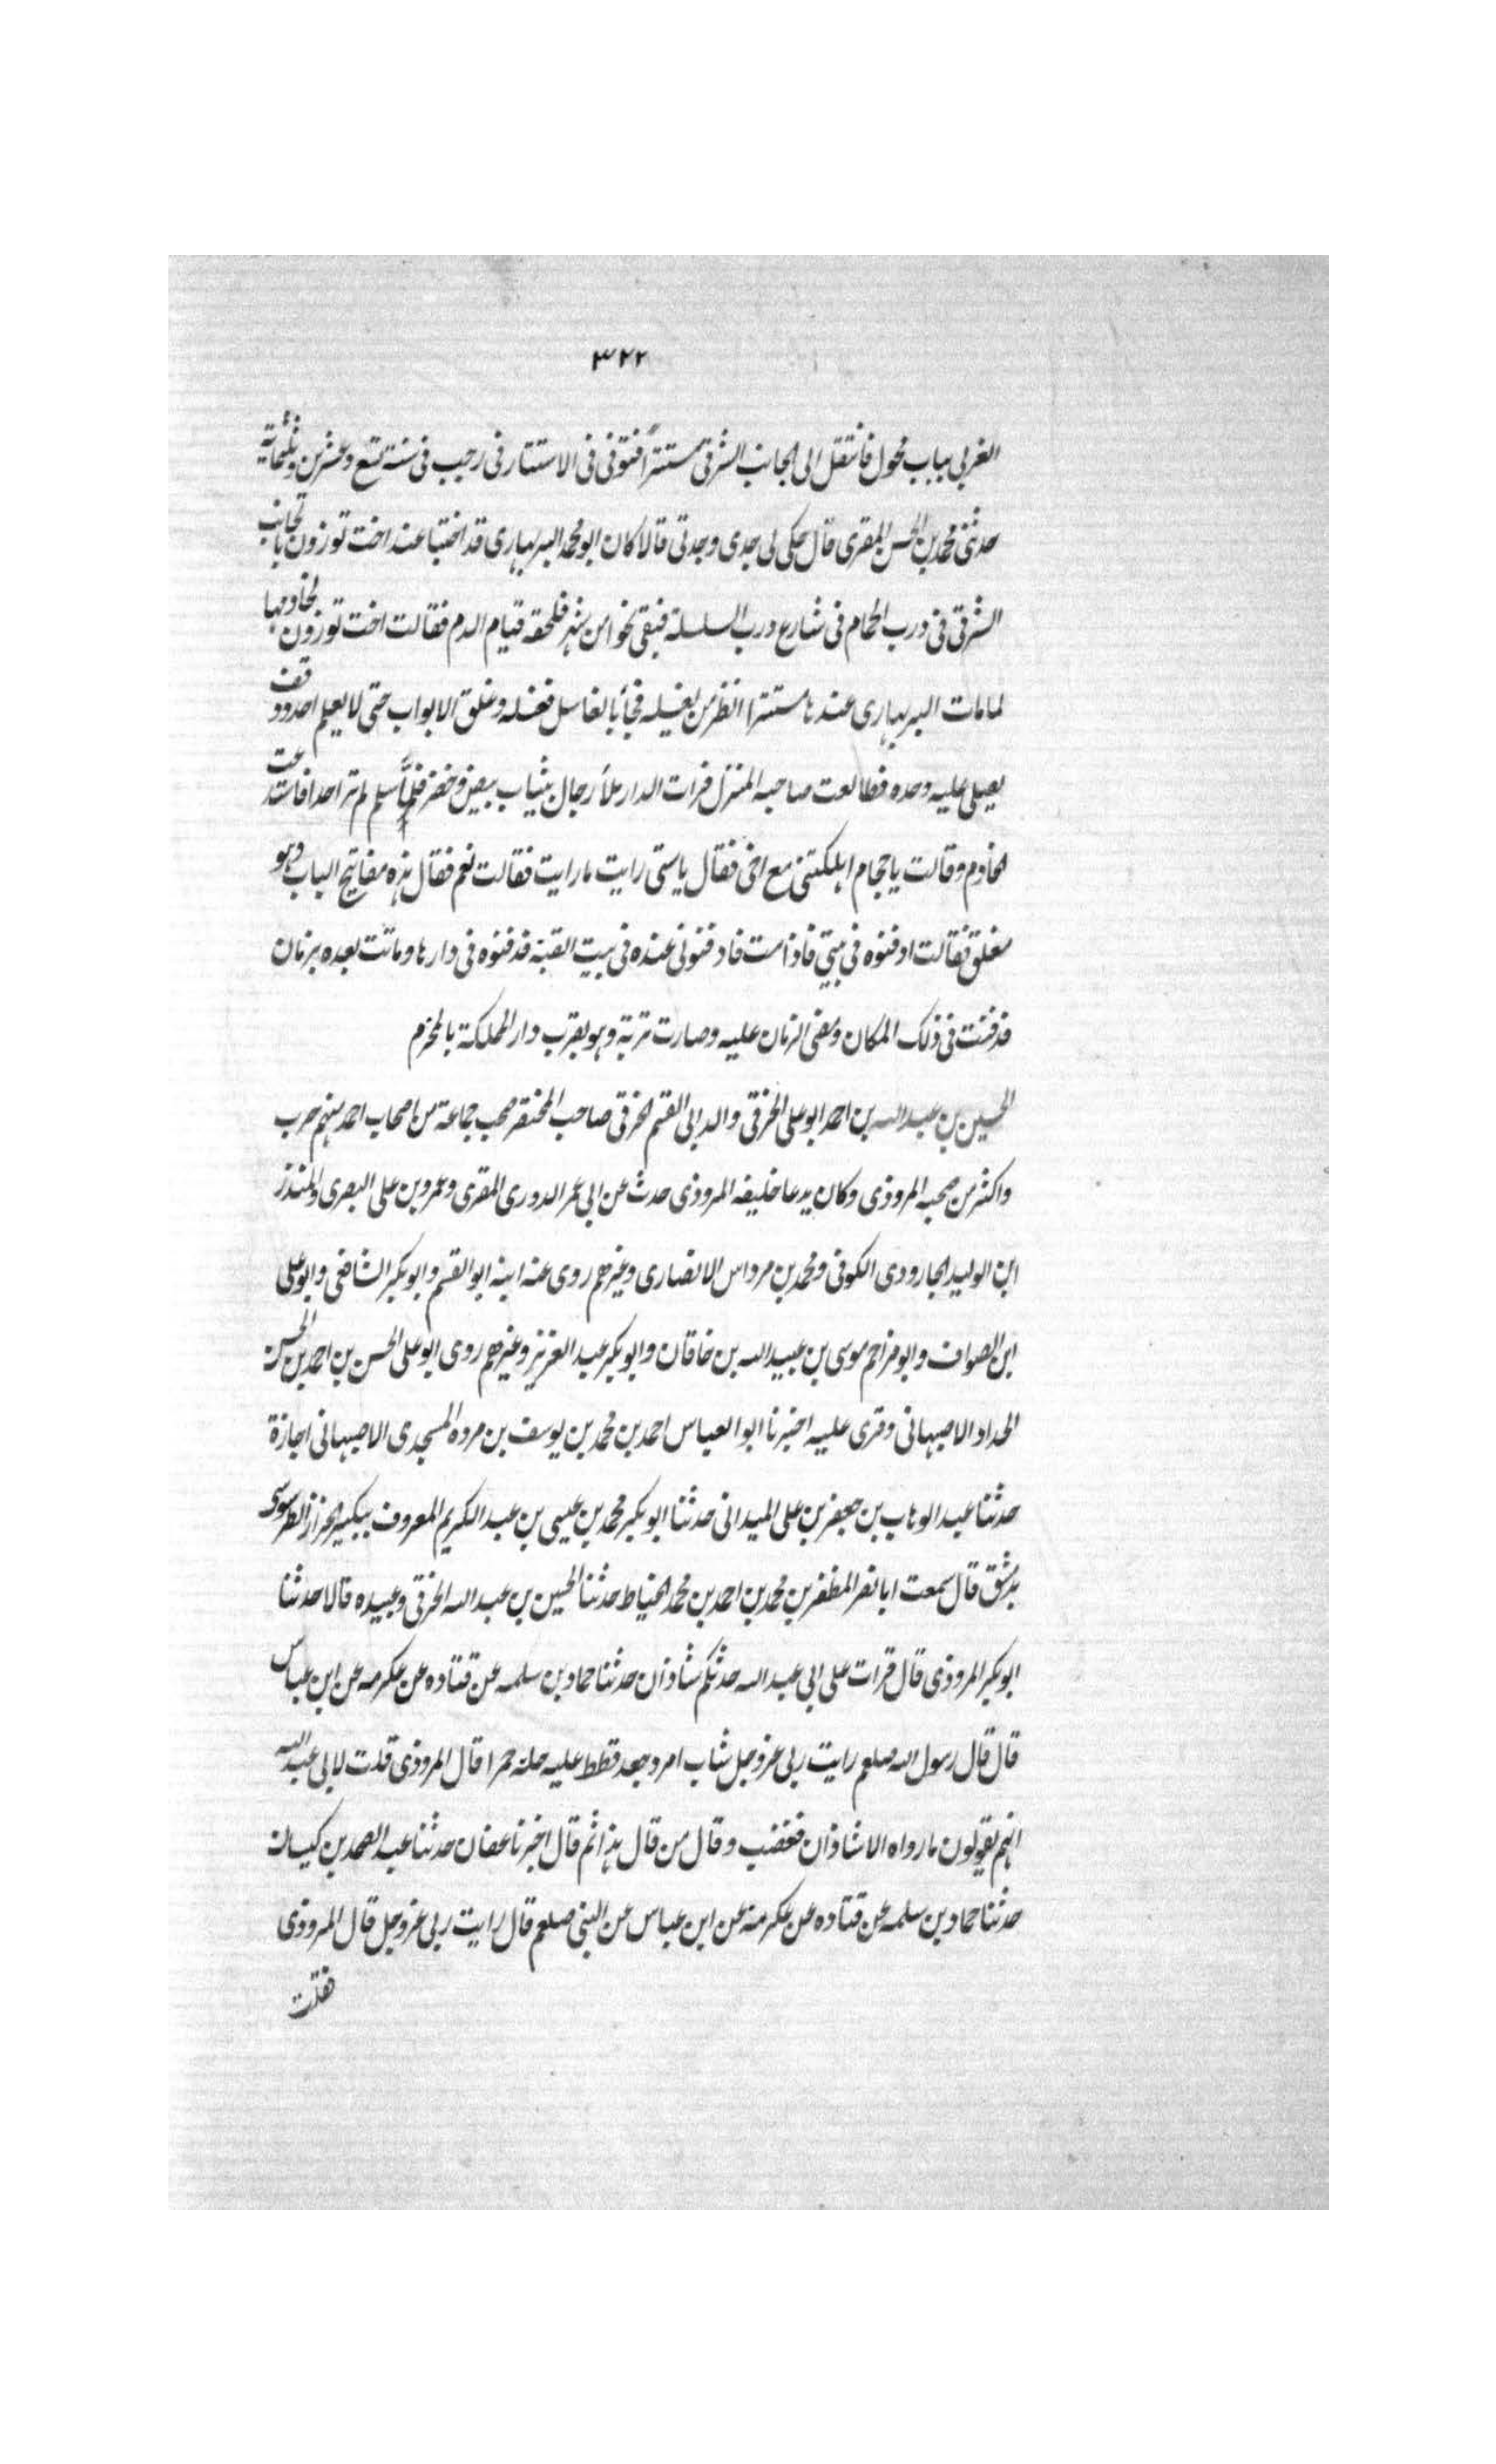 ٣٢٢
الغربی بباب محول فانتقل الی الجانب الشرقی مستتراً فتوفی فی الاستتار فی رجب فی سنة تسع وعشرین وثلثمائة
حدثنی محمد بن الحسن المقری قال حکی لی جدی وجدتی قالا کان ابو محمد البربهاری قد اختبا عند اخت توزون بالجانب
الشرقی فی درب الحمام فی شارع درب السلسلة فبقی نحوا من شهر فلحقه قیام الدم فقالت اخت توزون لخادمها
لما مات البربهاری عندها مستترا انظر من یغسله فجأ بالغاسل فغسله وغلق الابواب حتی لا یعلم احد ووقف
یصلی علیه وحده فطالعت صاحبه المنزل فرات الدار ملأ رجال بثیاب بیض وخضر فلمّا سلم لم تر احدا فاستدعت
الخادم وقالت یا حجام اهلکتنی مع اخی فقال یاستی رایت مارایت فقالت نعم فقال هذه مفاتیح الباب وهو
مغلق فقالت ادفنوه فی بیتی فاذا مت فادفنونی عنده فی بیت القبة فدفنوه فی دارها وماتت بعده بزمان
فدفنت فی ذلک المکان ومضی الزمان علیه وصارت تربة وهو بقرب دار المملکة بالمخرم
الحسین بن عبد الله بن احمد ابو علی الخرقی والد ابی القسم الخرقی صاحب المختصر صحب جماعة من اصحاب احمد منهم حرب
واکثر من صحبه المروذی وکان یدعا خلیفه المروذی حدث عن ابی عمر الدوری المقری وعمرو بن علی البصری والمنذر
ابن الولید الجارودی الکوفی ومحمد بن مرداس الانصاری وغیرهم روی عنه ابنه ابو القسم وابو بکر الشافعی وابو علی
ابن الصواف وابو مزاحم موسی بن عبید الله بن خاقان وابو بکر عبد العزیز وغیرهم روی ابو علی الحسن بن احمد بن الحسن
الحداد الاصبهانی وقری علیه اخبرنا ابو العباس احمد بن محمد بن یوسف بن مرده المسجدی الاصبهانی اجازة
حدثنا عبد الوهاب بن جعفر بن علی المیدانی حدثنا ابو بکر محمد بن عیسی بن عبد الکریم المعروف ببکیر الخراز الطرسوسی
بدمشق قال سمعت ابا نصر المظفر بن محمد بن احمد بن محمد الخیاط حدثنا الحسین بن عبد الله الخرقی وعبیده قالا حدثنا
ابو بکر المروذی قال قرات علی ابی عبد الله حدثکم شاذان حدثنا حماد بن سلمه عن قتاده عن عکرمه عن ابن عباس
قال قال رسول الله صلعم رایت ربی عزوجل شاب امرد جعد قطط علیه حلة حمرا قال المروذی قلت لابی عبد الله
انهم یقولون مارواه الا شاذان فغضب وقال من قال هذا ثم قال اخبرنا عفان حدثنا عبد الصمد بن کیسان
حدثنا حماد بن سلمه عن قتاده عن عکرمة عن ابن عباس عن النبی صلعم قال رایت ربی عزوجل قال المروذی
فقلت